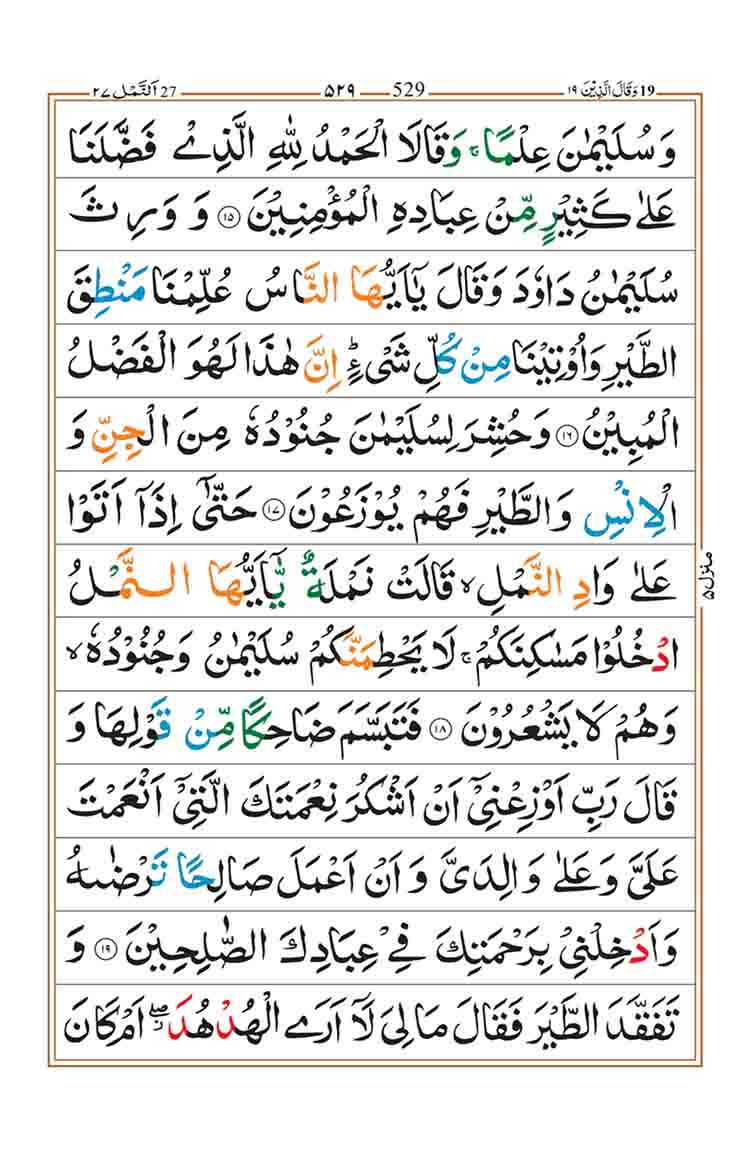 19 وَقَالَ الَّذِيْنَ ١٩ 529 ۵۲۹ 27 اَلنَّمْل ٢٧
وَ سُلَيْمٰنَ عِلْمًا ۚ وَقَالَا الْحَمْدُ لِلّٰهِ الَّذِيْ فَضَّلَنَا
عَلٰى كَثِيْرٍ مِّنْ عِبَادِهِ الْمُؤْمِنِيْنَ ۝١٥ وَ وَرِثَ
سُلَيْمٰنُ دَاوٗدَ وَقَالَ يٰۤاَيُّهَا النَّاسُ عُلِّمْنَا مَنْطِقَ
الطَّيْرِ وَاُوْتِيْنَا مِنْ كُلِّ شَيْءٍ ؕ اِنَّ هٰذَا لَهُوَ الْفَضْلُ
الْمُبِيْنُ ۝١٦ وَحُشِرَ لِسُلَيْمٰنَ جُنُوْدُهٗ مِنَ الْجِنِّ وَ
الْاِنْسِ وَالطَّيْرِ فَهُمْ يُوْزَعُوْنَ ۝١٧ حَتّٰۤى اِذَاۤ اَتَوْا
عَلٰى وَادِ النَّمْلِ ۙ قَالَتْ نَمْلَةٌ يّٰۤاَيُّهَا النَّمْلُ
ادْخُلُوْا مَسٰكِنَكُمْ ۚ لَا يَحْطِمَنَّكُمْ سُلَيْمٰنُ وَجُنُوْدُهٗ ۙ
وَهُمْ لَا يَشْعُرُوْنَ ۝١٨ فَتَبَسَّمَ ضَاحِكًا مِّنْ قَوْلِهَا وَ
قَالَ رَبِّ اَوْزِعْنِيْۤ اَنْ اَشْكُرَ نِعْمَتَكَ الَّتِيْۤ اَنْعَمْتَ
عَلَيَّ وَعَلٰى وَالِدَيَّ وَاَنْ اَعْمَلَ صَالِحًا تَرْضٰىهُ
وَاَدْخِلْنِيْ بِرَحْمَتِكَ فِيْ عِبَادِكَ الصّٰلِحِيْنَ ۝١٩ وَ
تَفَقَّدَ الطَّيْرَ فَقَالَ مَا لِيَ لَاۤ اَرَى الْهُدْهُدَ ۖ اَمْ كَانَ
منزل ۵